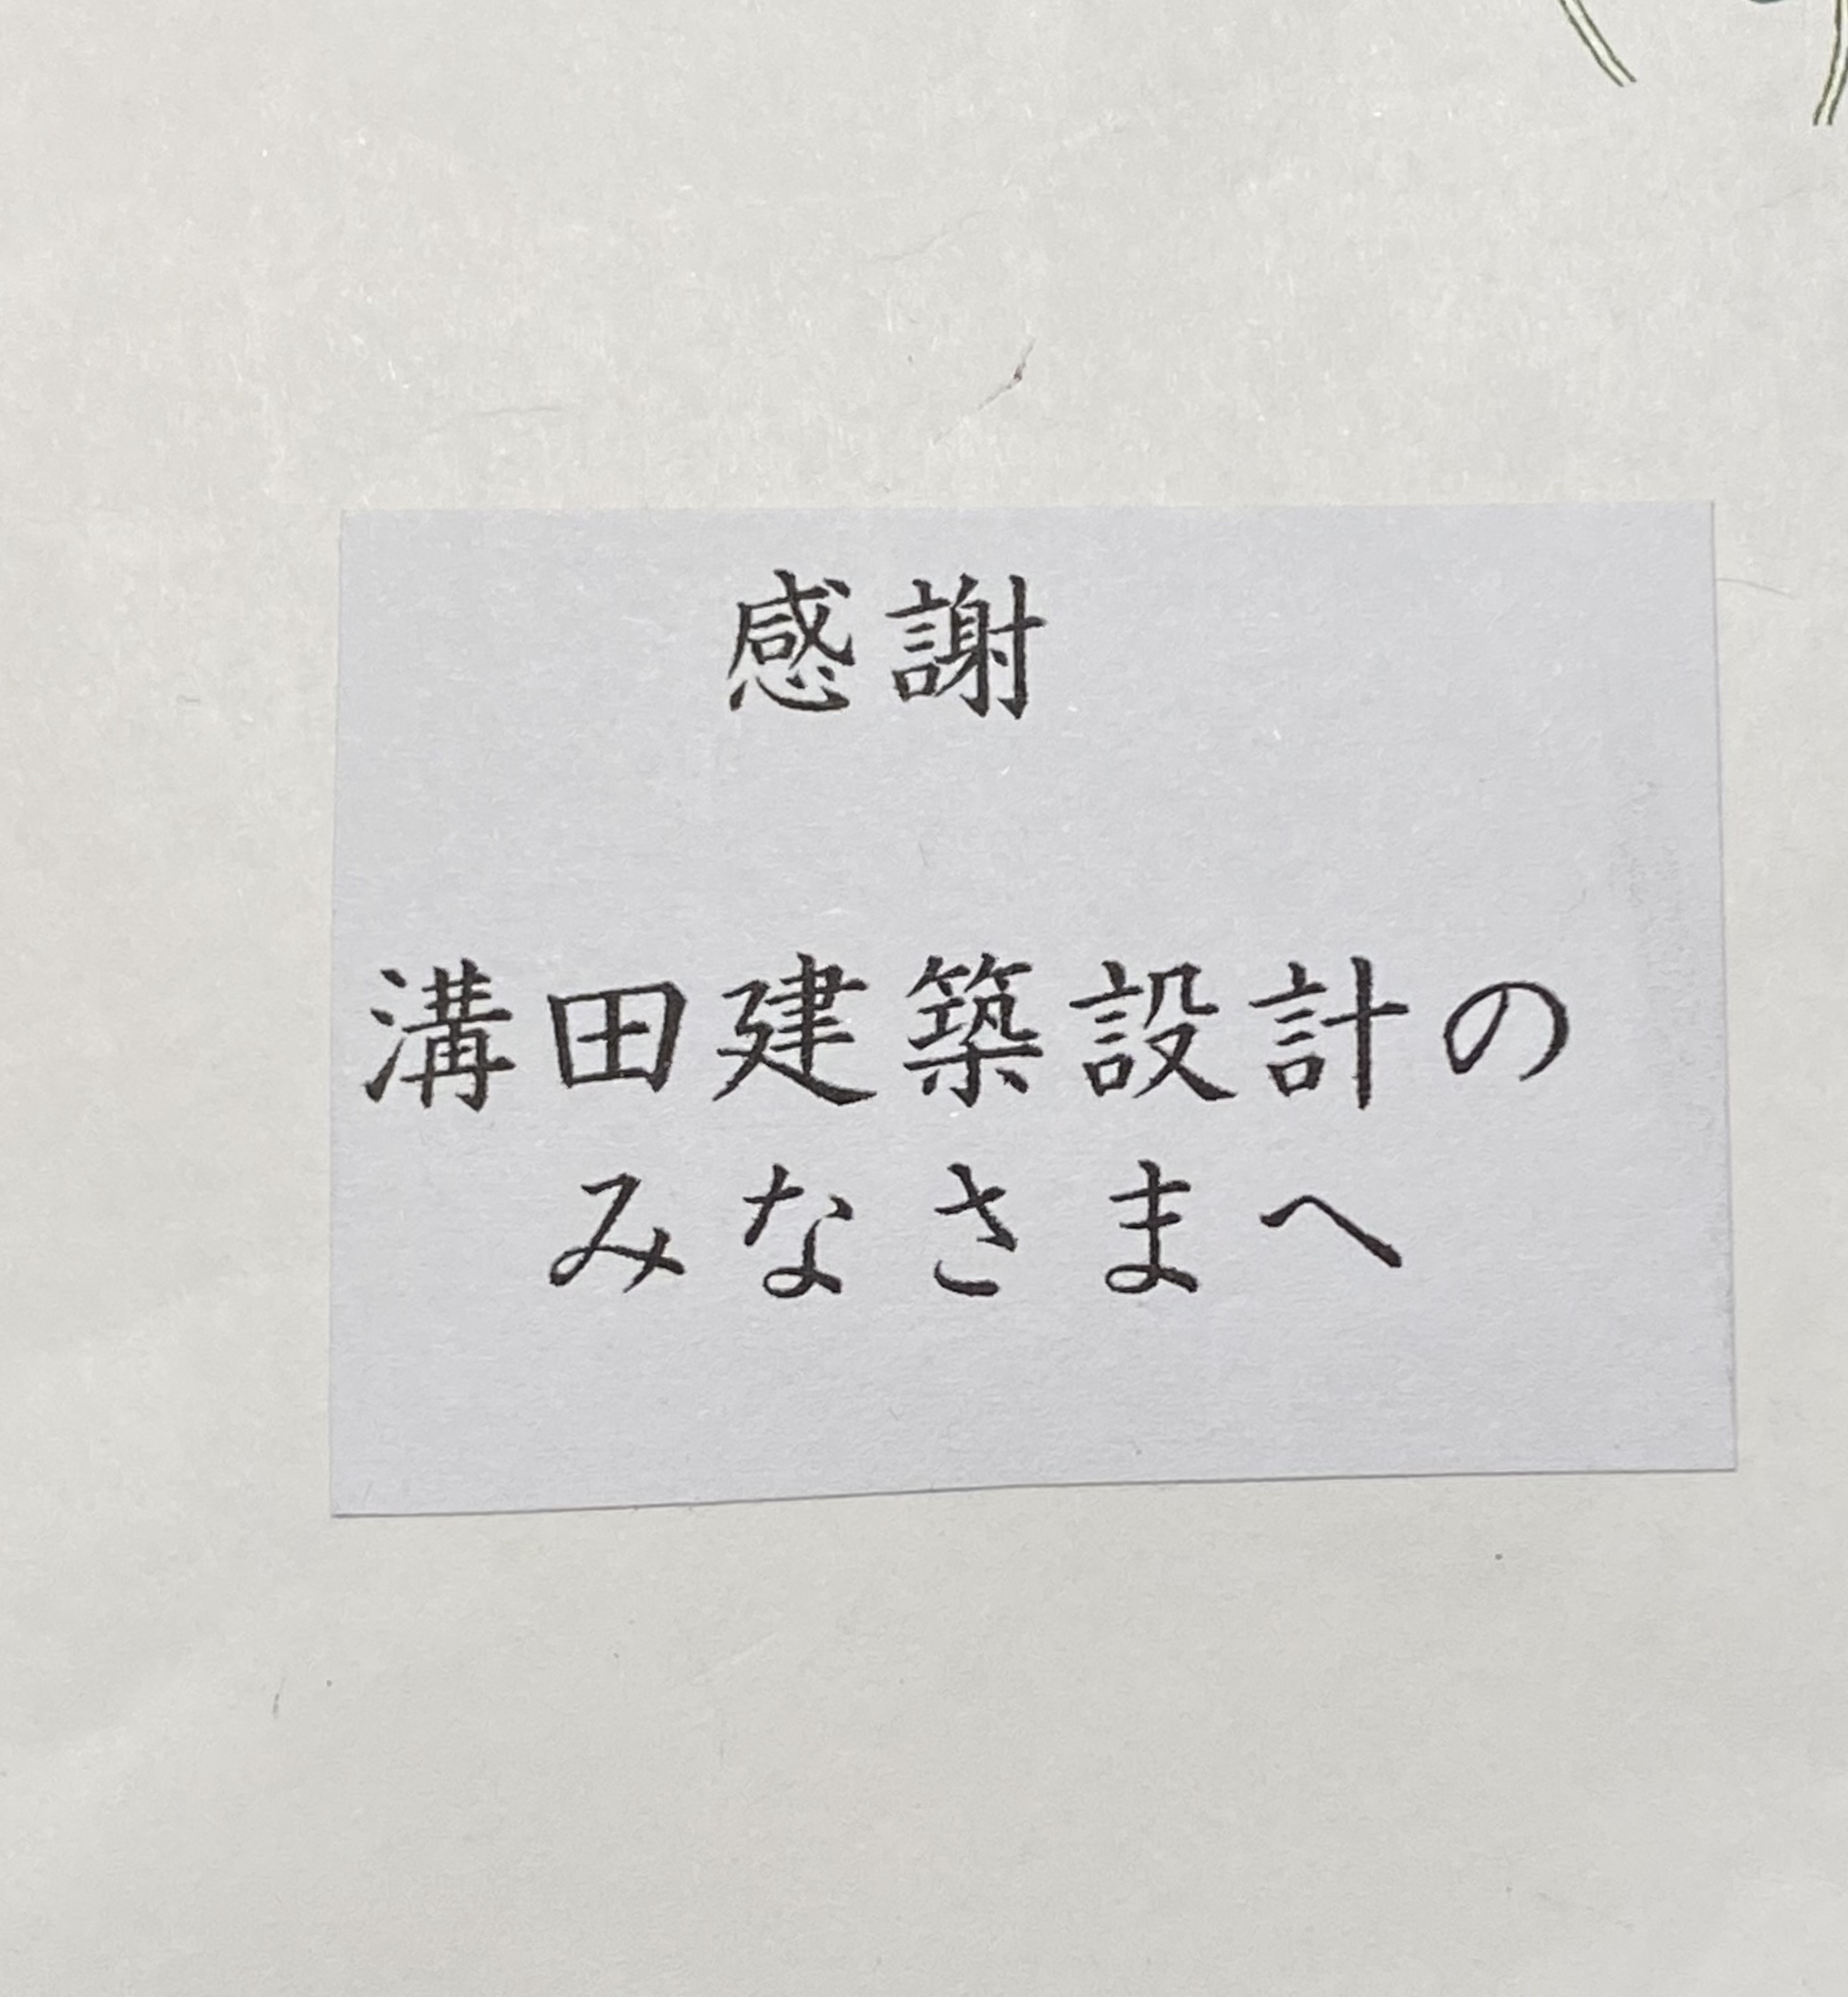 感謝
溝田建築設計の
みなさまへ